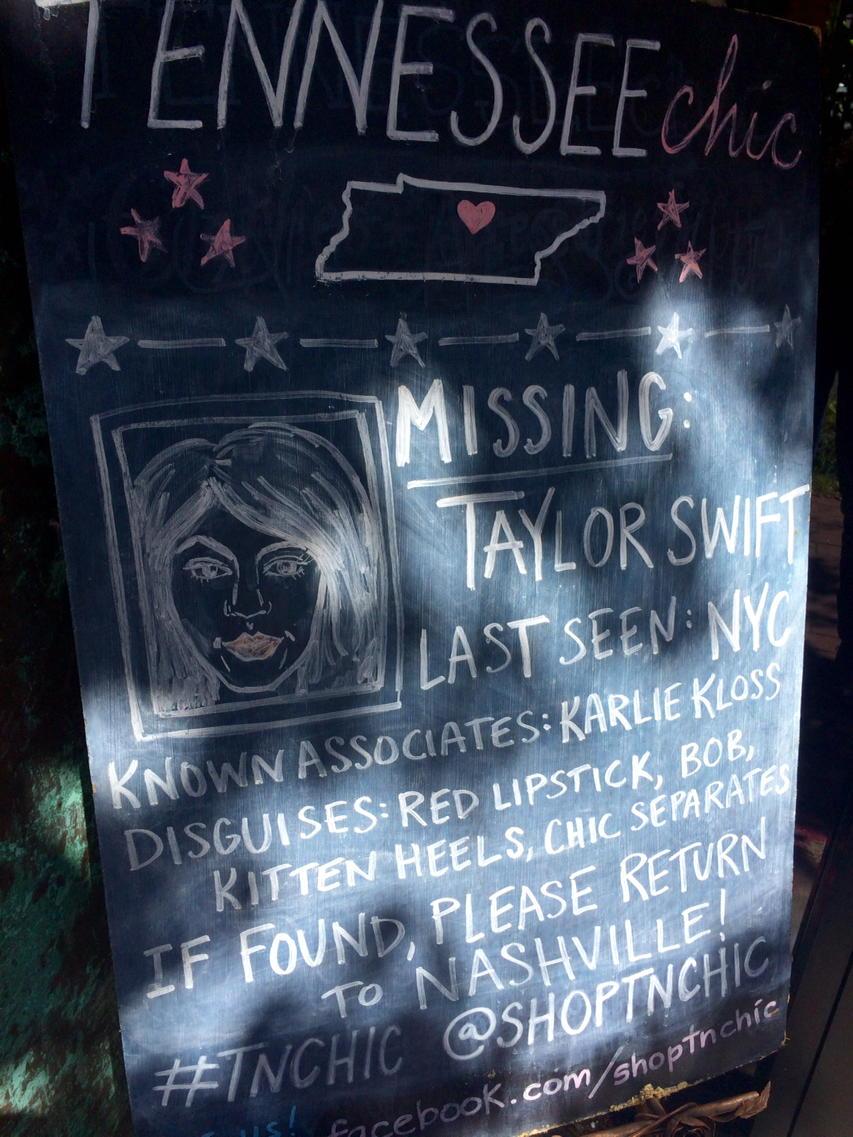 TENNESSEE chic
MISSING:
TAYLOR SWIFT
LAST SEEN: NYC
KNOWN ASSOCIATES: KARLIE KLOSS
DISGUISES: RED LIPSTICK, BOB,
KITTEN HEELS, CHIC SEPARATES
IF FOUND, PLEASE RETURN
TO NASHVILLE!
#TNCHIC @SHOPTNCHIC
us! facebook.com/shoptnchic